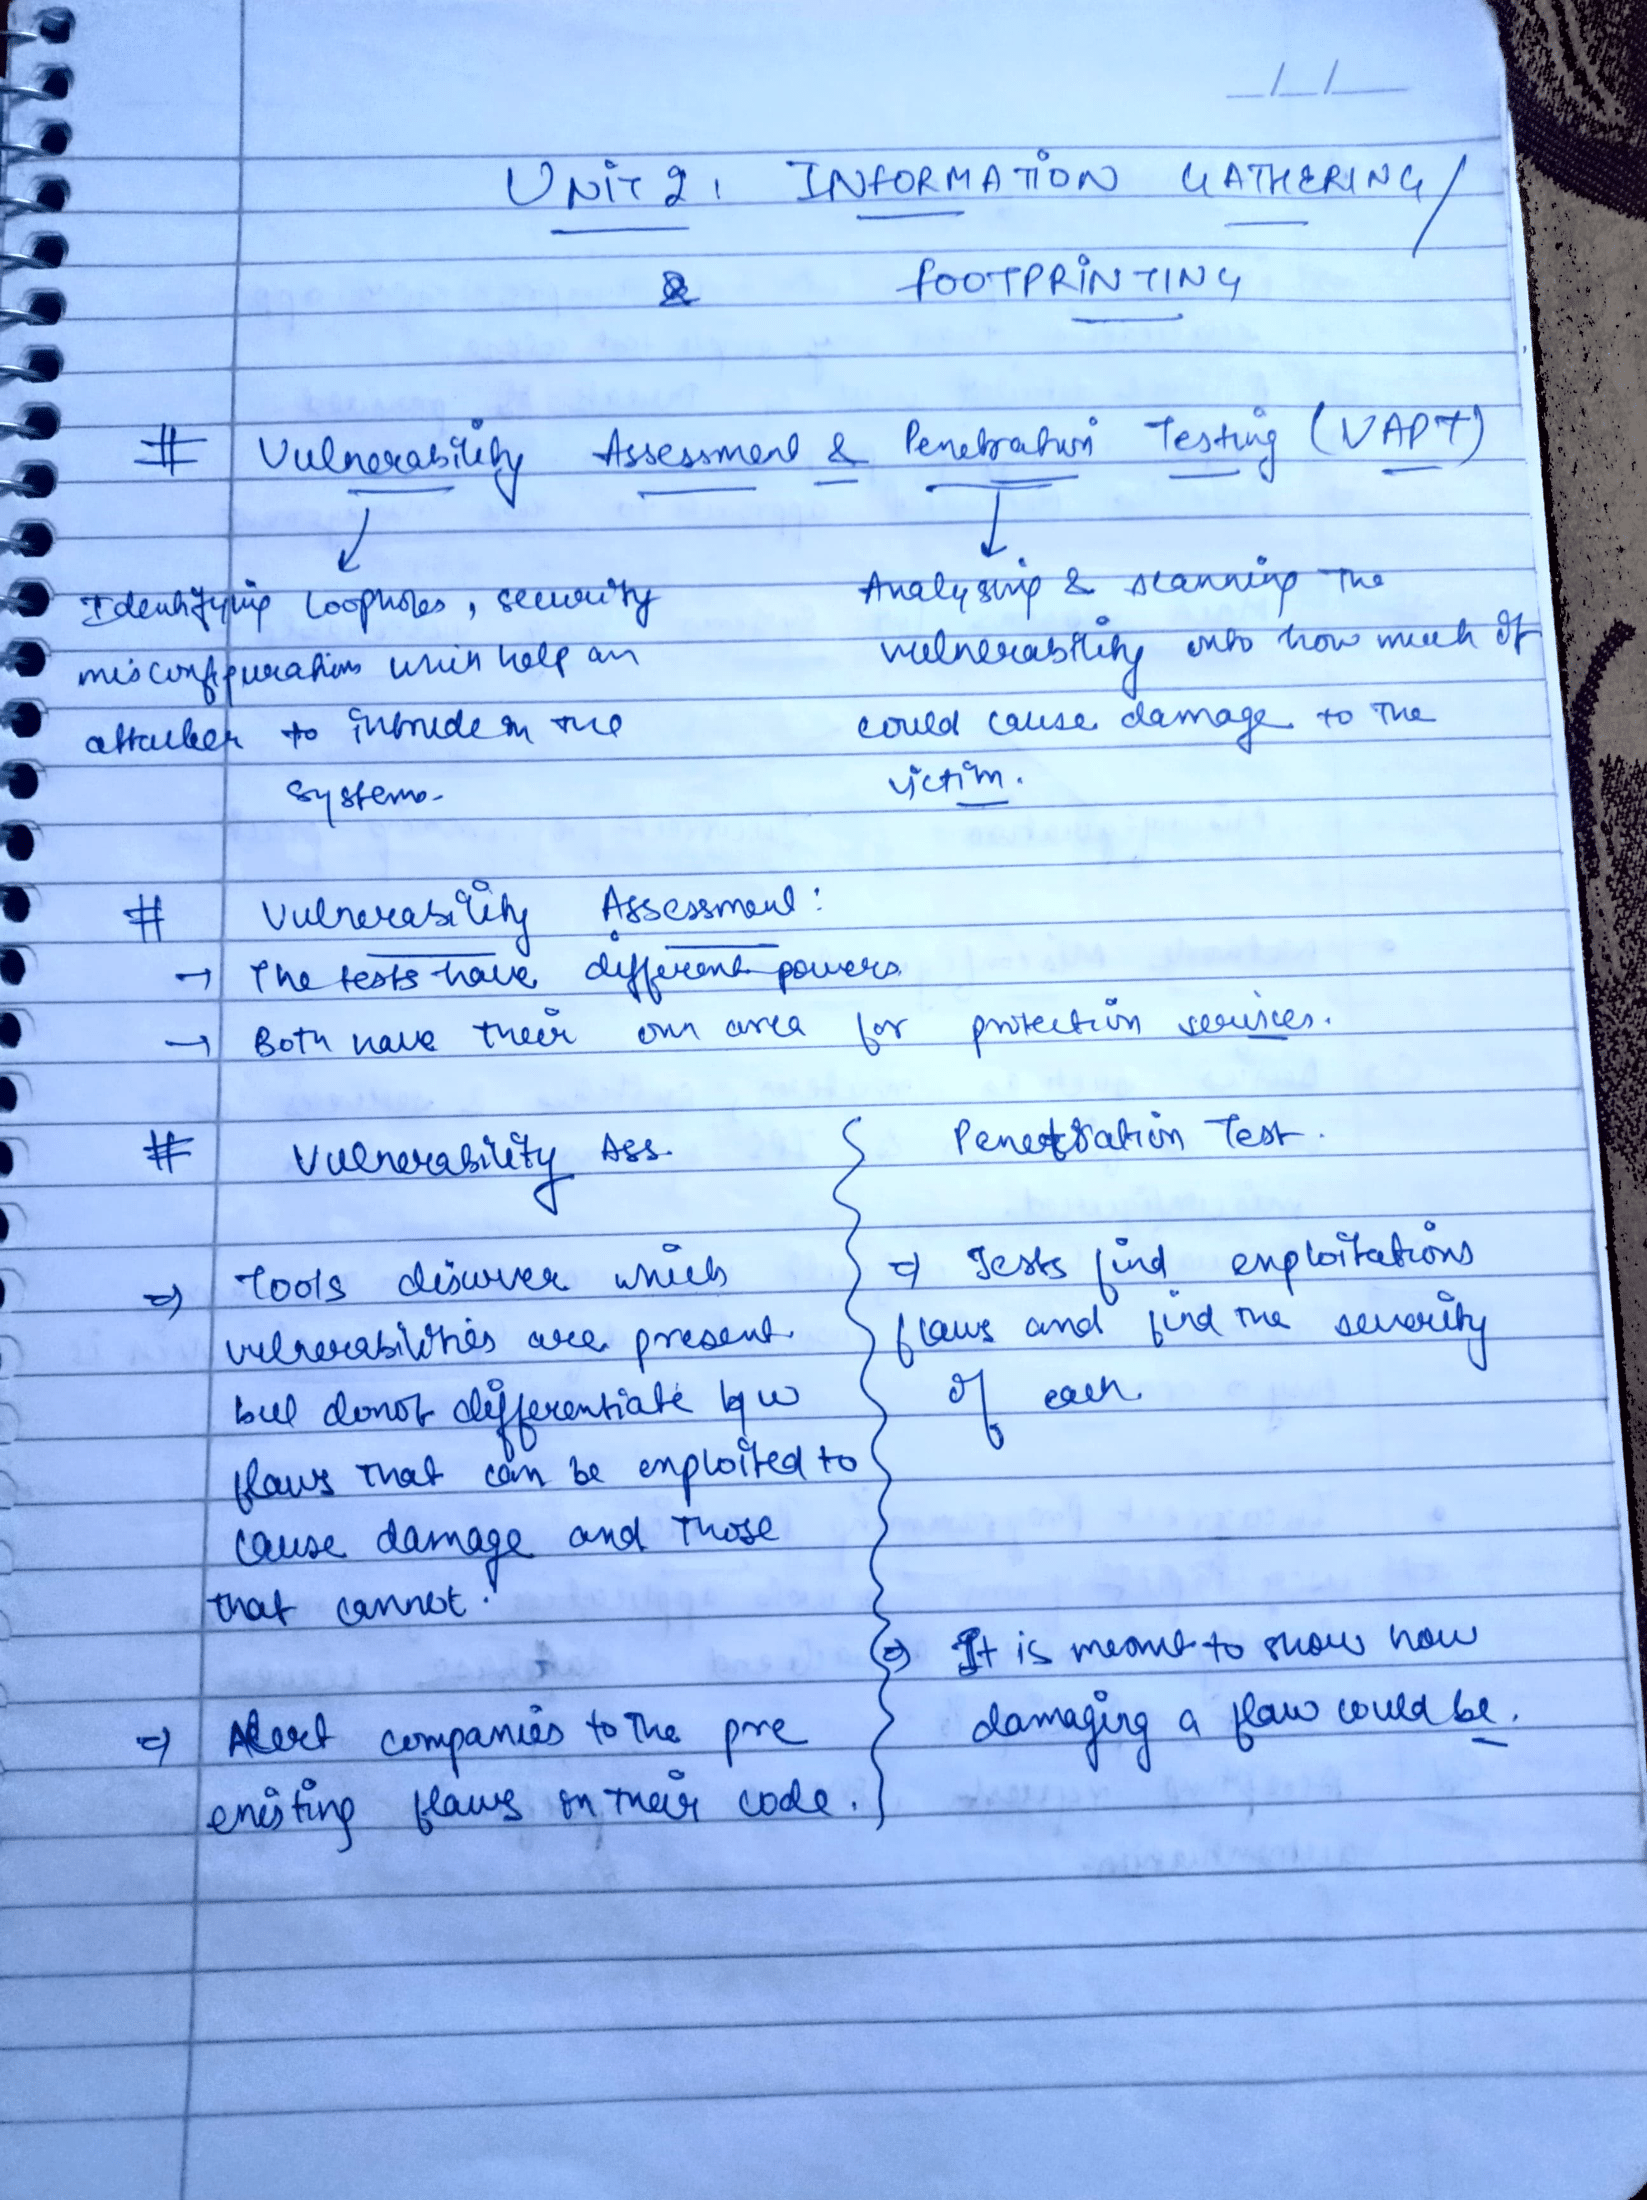 _/_/_
UNIT 2: INFORMATION GATHERING/
& FOOTPRINTING
# Vulnerability Assessment & Penetration Testing (VAPT)
Identifying loopholes, security
misconfigurations which help an
attacker to intrude in the
systems.
Analysing & scanning the
vulnerability into how much of
could cause damage to the
victim.
# Vulnerability Assessment:
→ The tests have different powers.
→ Both have their own area for protection services.
# Vulnerability Ass.
⇒ Tools discover which
vulnerabilities are present
but donot differentiate b/w
flaws that can be exploited to
cause damage and those
that cannot.
⇒ Alert companies to the pre
existing flaws in their code.
Penetration Test.
⇒ Tests find exploitations
flaws and find the severity
of each
⇒ It is meant to show how
damaging a flaw could be.